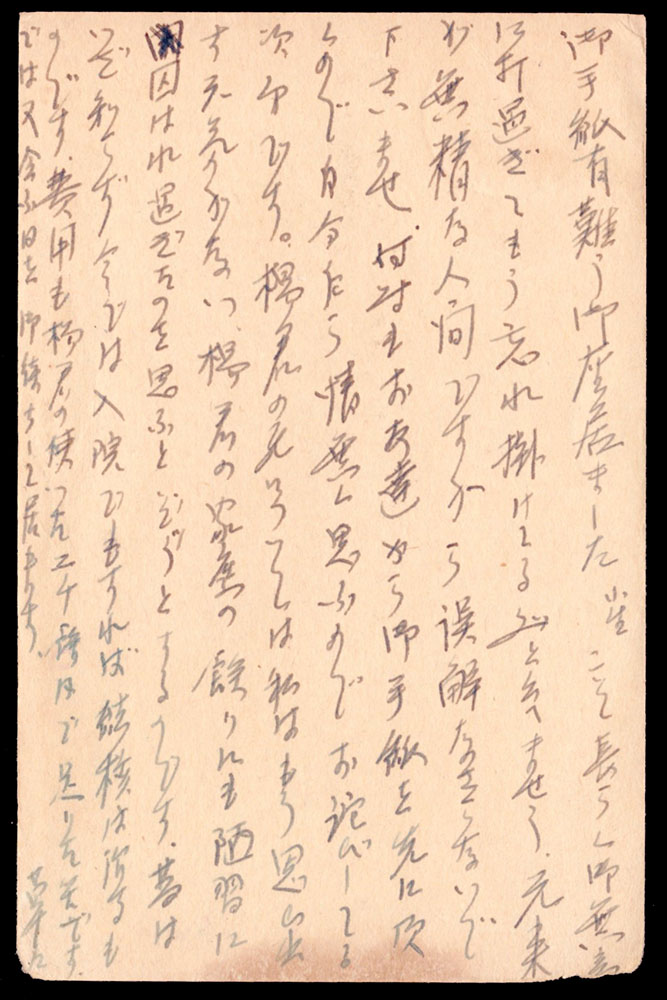 御手紙有難う御座居ました 小生こそ長らく御無音
に打過ぎてもう忘れ掛けてる と云へませう、元来
が無精な人間ですから誤解なさらないで
下さいませ、何時もお友達から御手紙を先に頂
くので自分乍ら情無く思ふので お詫びしてる
次第です。楊君の死については私はもう思出
す元気がない、楊君の家族の餘りにも陋習に
囚はれ過ぎたのを思ふと ぞうとするのです、昔は
いざ知らず今では入院でもすれば結核は治るも
のです、費用も楊君の使つた二千 円で足りた筈です、
では又会ふ日を御待ちして居ります、